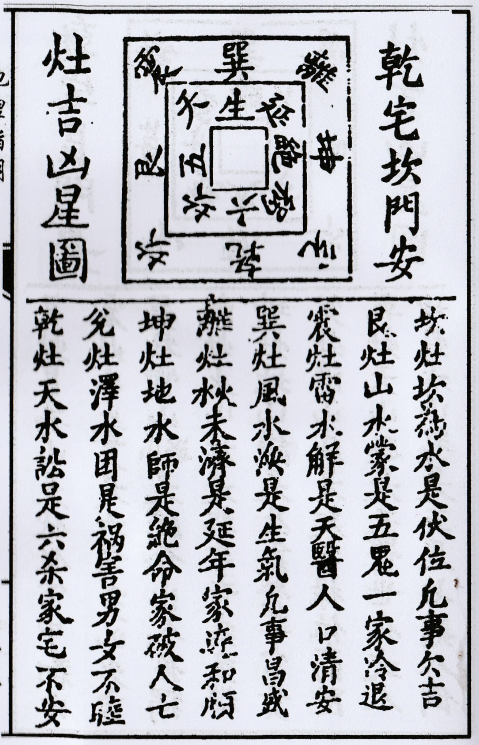 乾宅坎門安
灶吉凶星圖
震巽離
天生延
艮五絕坤
伏六禍
坎乾兌
坎灶坎為水是伏位凡事欠吉
艮灶山水蒙是五鬼一家冷退
震灶雷水解是天醫人口清安
巽灶風水渙是生氣凡事昌盛
離灶火水未濟是延年家道和順
坤灶地水師是絕命家破人亡
兌灶澤水困是禍害男女不
乾灶天水訟是六杀家宅不安